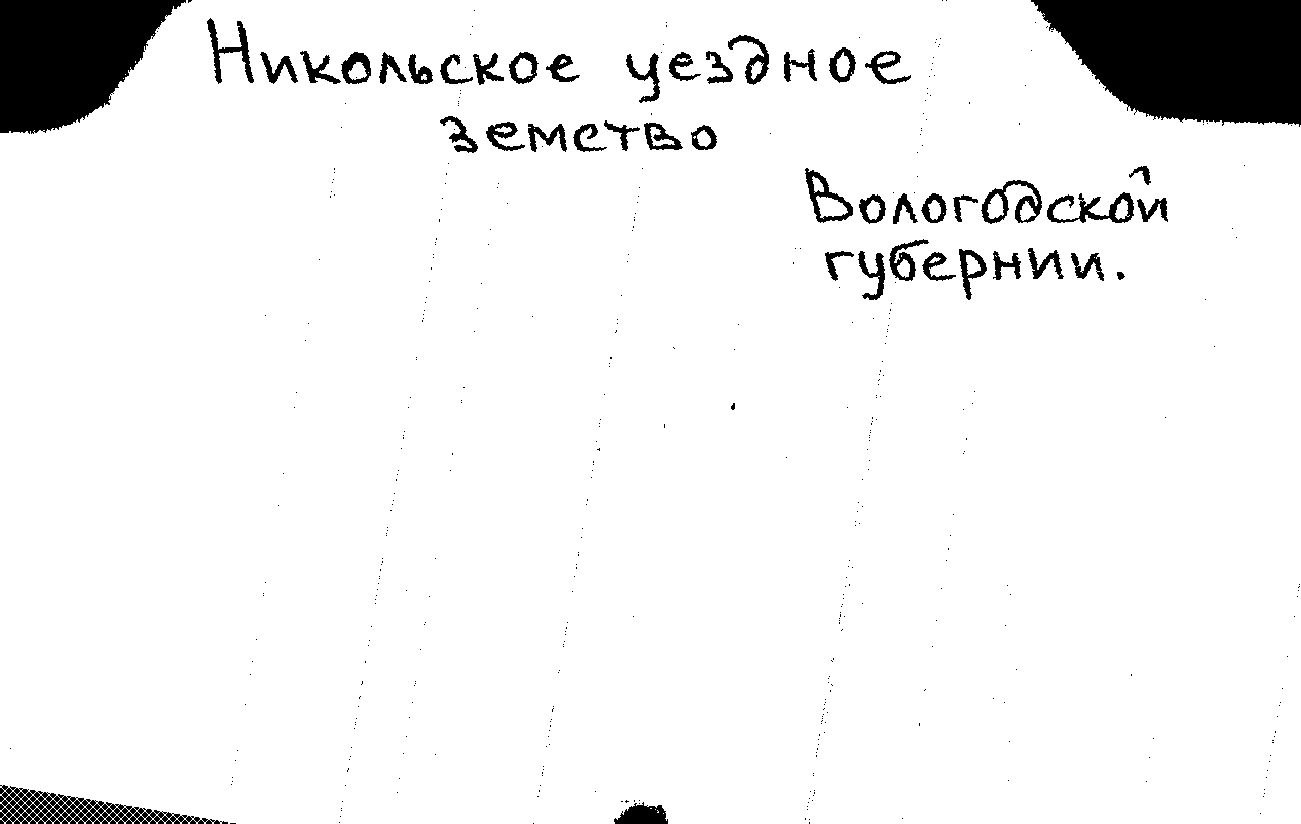 Никольское уездное
земство
Вологодской
губернии.